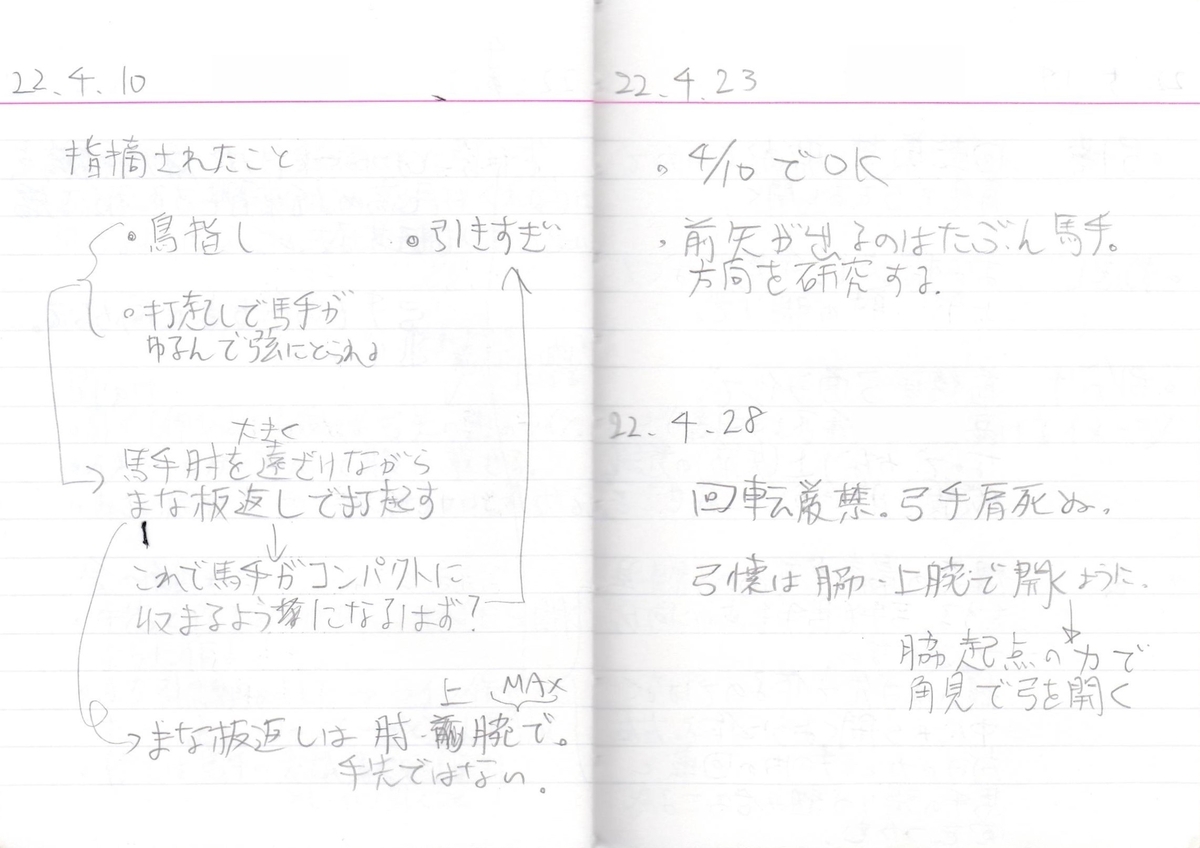 22.4.10
指摘されたこと
。鳥指し
。引きすぎ
。打起しで馬手が
ゆるんで弦にとられる
大きく
馬手肘を遠ざけながら
まな板返しで打起す
これで馬手がコンパクトに
収まるようになるはず?
上 MAX
まな板返しは肘・前腕で。
手先ではない。
22.4.23
。4/10でOK
。前矢が出るのはたぶん馬手。
方向を研究する.
22.4.28
回転厳禁。弓手肩死ぬ。
弓懐は脇・上腕で開くように.
脇起点の力で
角見で弓を開く